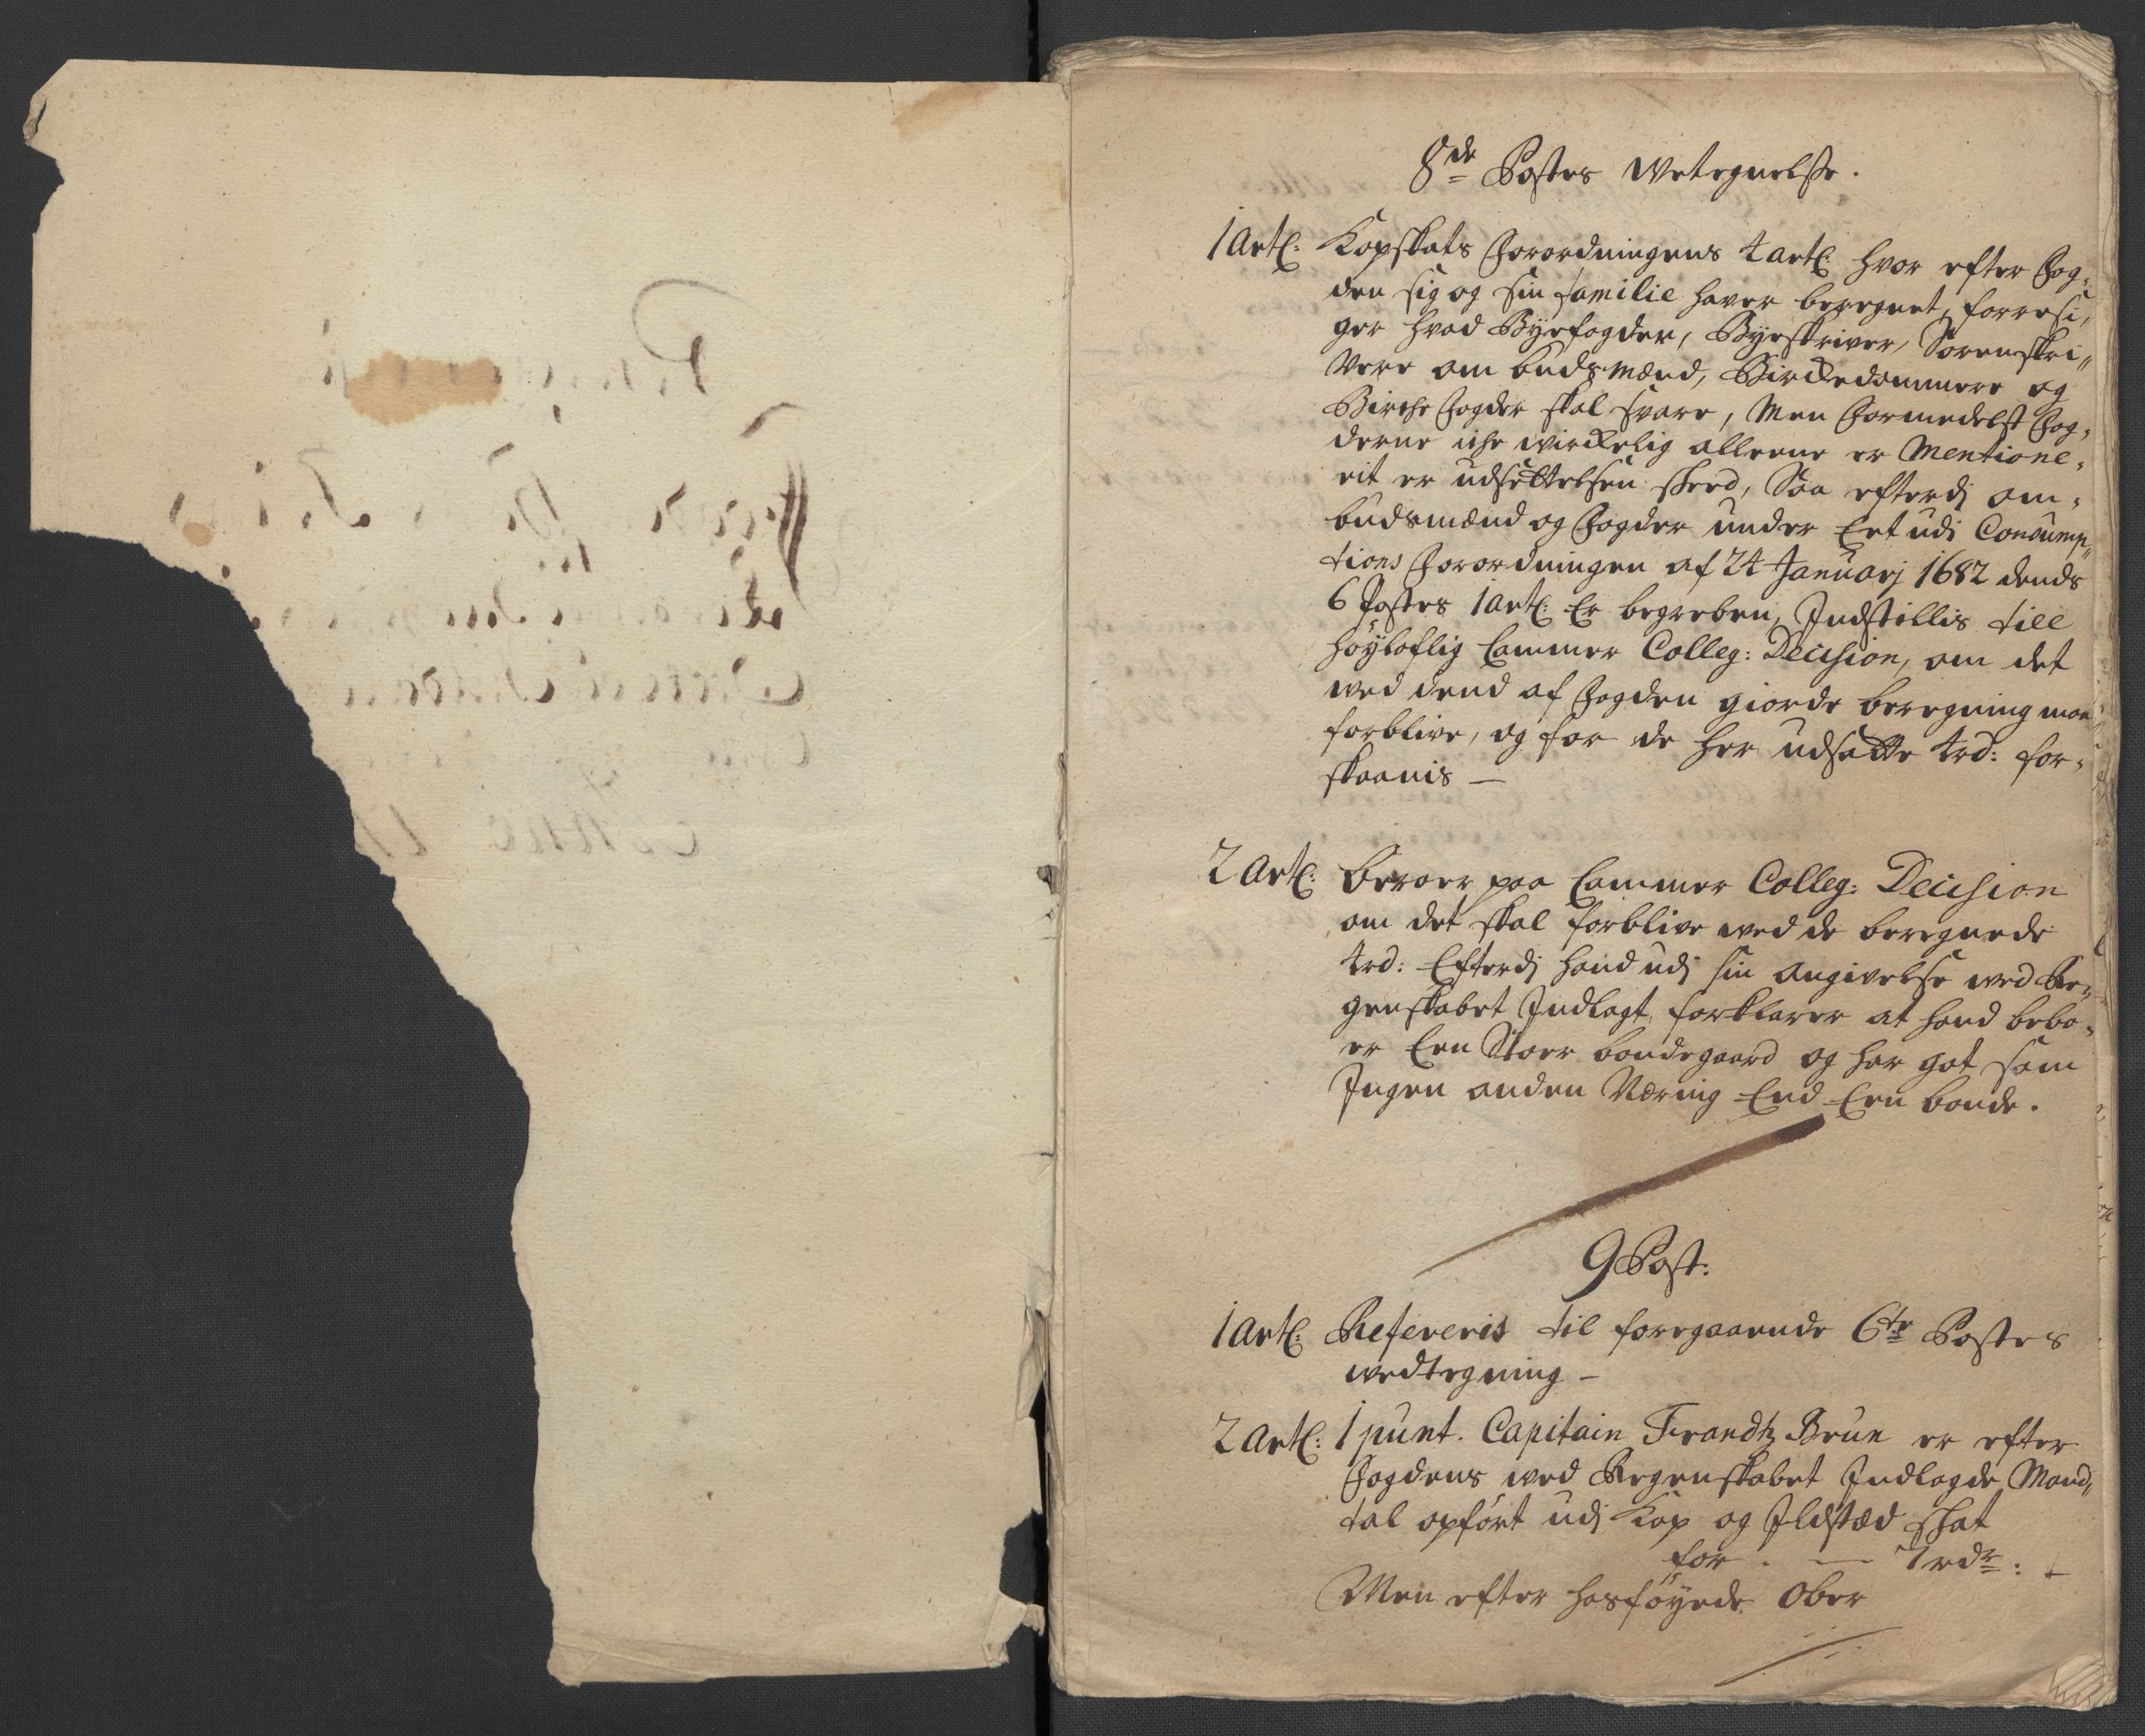 8de Postes Wetegnelsse.
1 Artl: Kopskats Forordningens 4 artl: hvor efter Fog-
den sig og sin familie haver beregnet, forresi,
ger hvad Byefogder, Byeskriver, Sorenskri„
Vere ombudsmænd, Birckedommere og
Birche Fogder skal svare, Men Formedelst Fog-
derne iche wirckelig alleene er Mentione-
rit er udsettelsen skeed, Saa efterdj om-
budsmænd og Fogder under Eet udi Consump„
tions Forordningen af 24 Januarj 1682 dends
6 Postes 1 artl: Er begreben, Indstillis till
höyloflig Cammer Colleg: Decision, om det
wed dend af Fogden giorde beregning maa
forblive, og for de her udsatte 4 rd: for-
skaanis —
2 Artl: Beroer paa Cammer Colleg: Decision
om det skal forblive wed de beregnede
4 rd: Efterdj hand udj sin angivelse wed Re-
genskabet Indlagt, forklarer at hand bebo-
er Een Stoer bondegaard og har got som
Ingen anden Næring End Een bonde.
9 Post:
1 Artl: Refereris til foregaaende 6te Postes
wedtegning —
2 Artl: 1 punt. Capitain Frandtz Brun er efter
Fogdens wed Regenskabet Indlagde Mand„
tal opfört udj Kop og Ildstæd skat
for . — 7 rdr:
Men efter hosföyede Ober